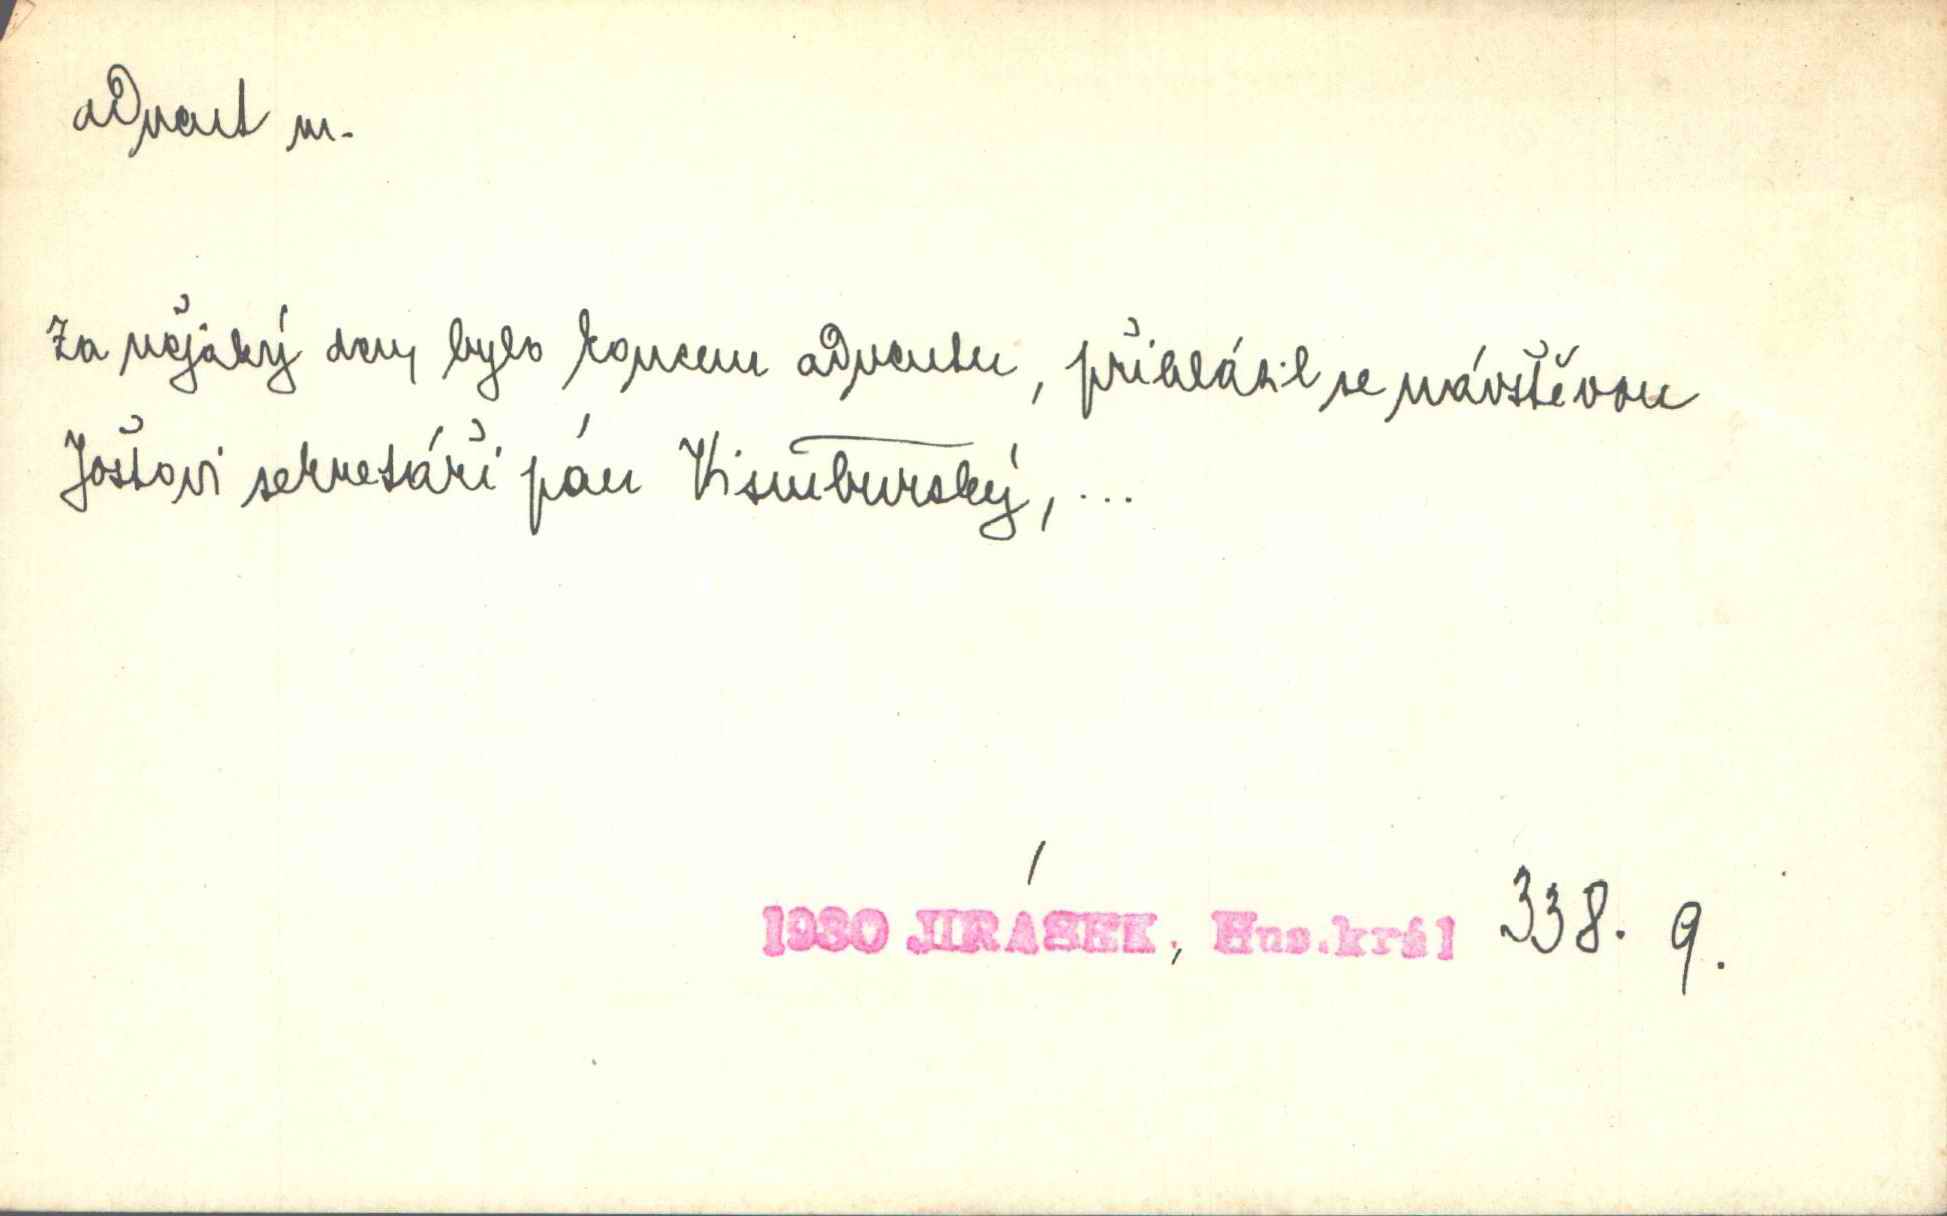 advent m.
Za nějaký den, bylo koncem adventu, přihlásil se návštěvou
Joštovi sekretáři pán Vismburský, ...
1930 JIRÁSEK, Hus.král 338. 9.